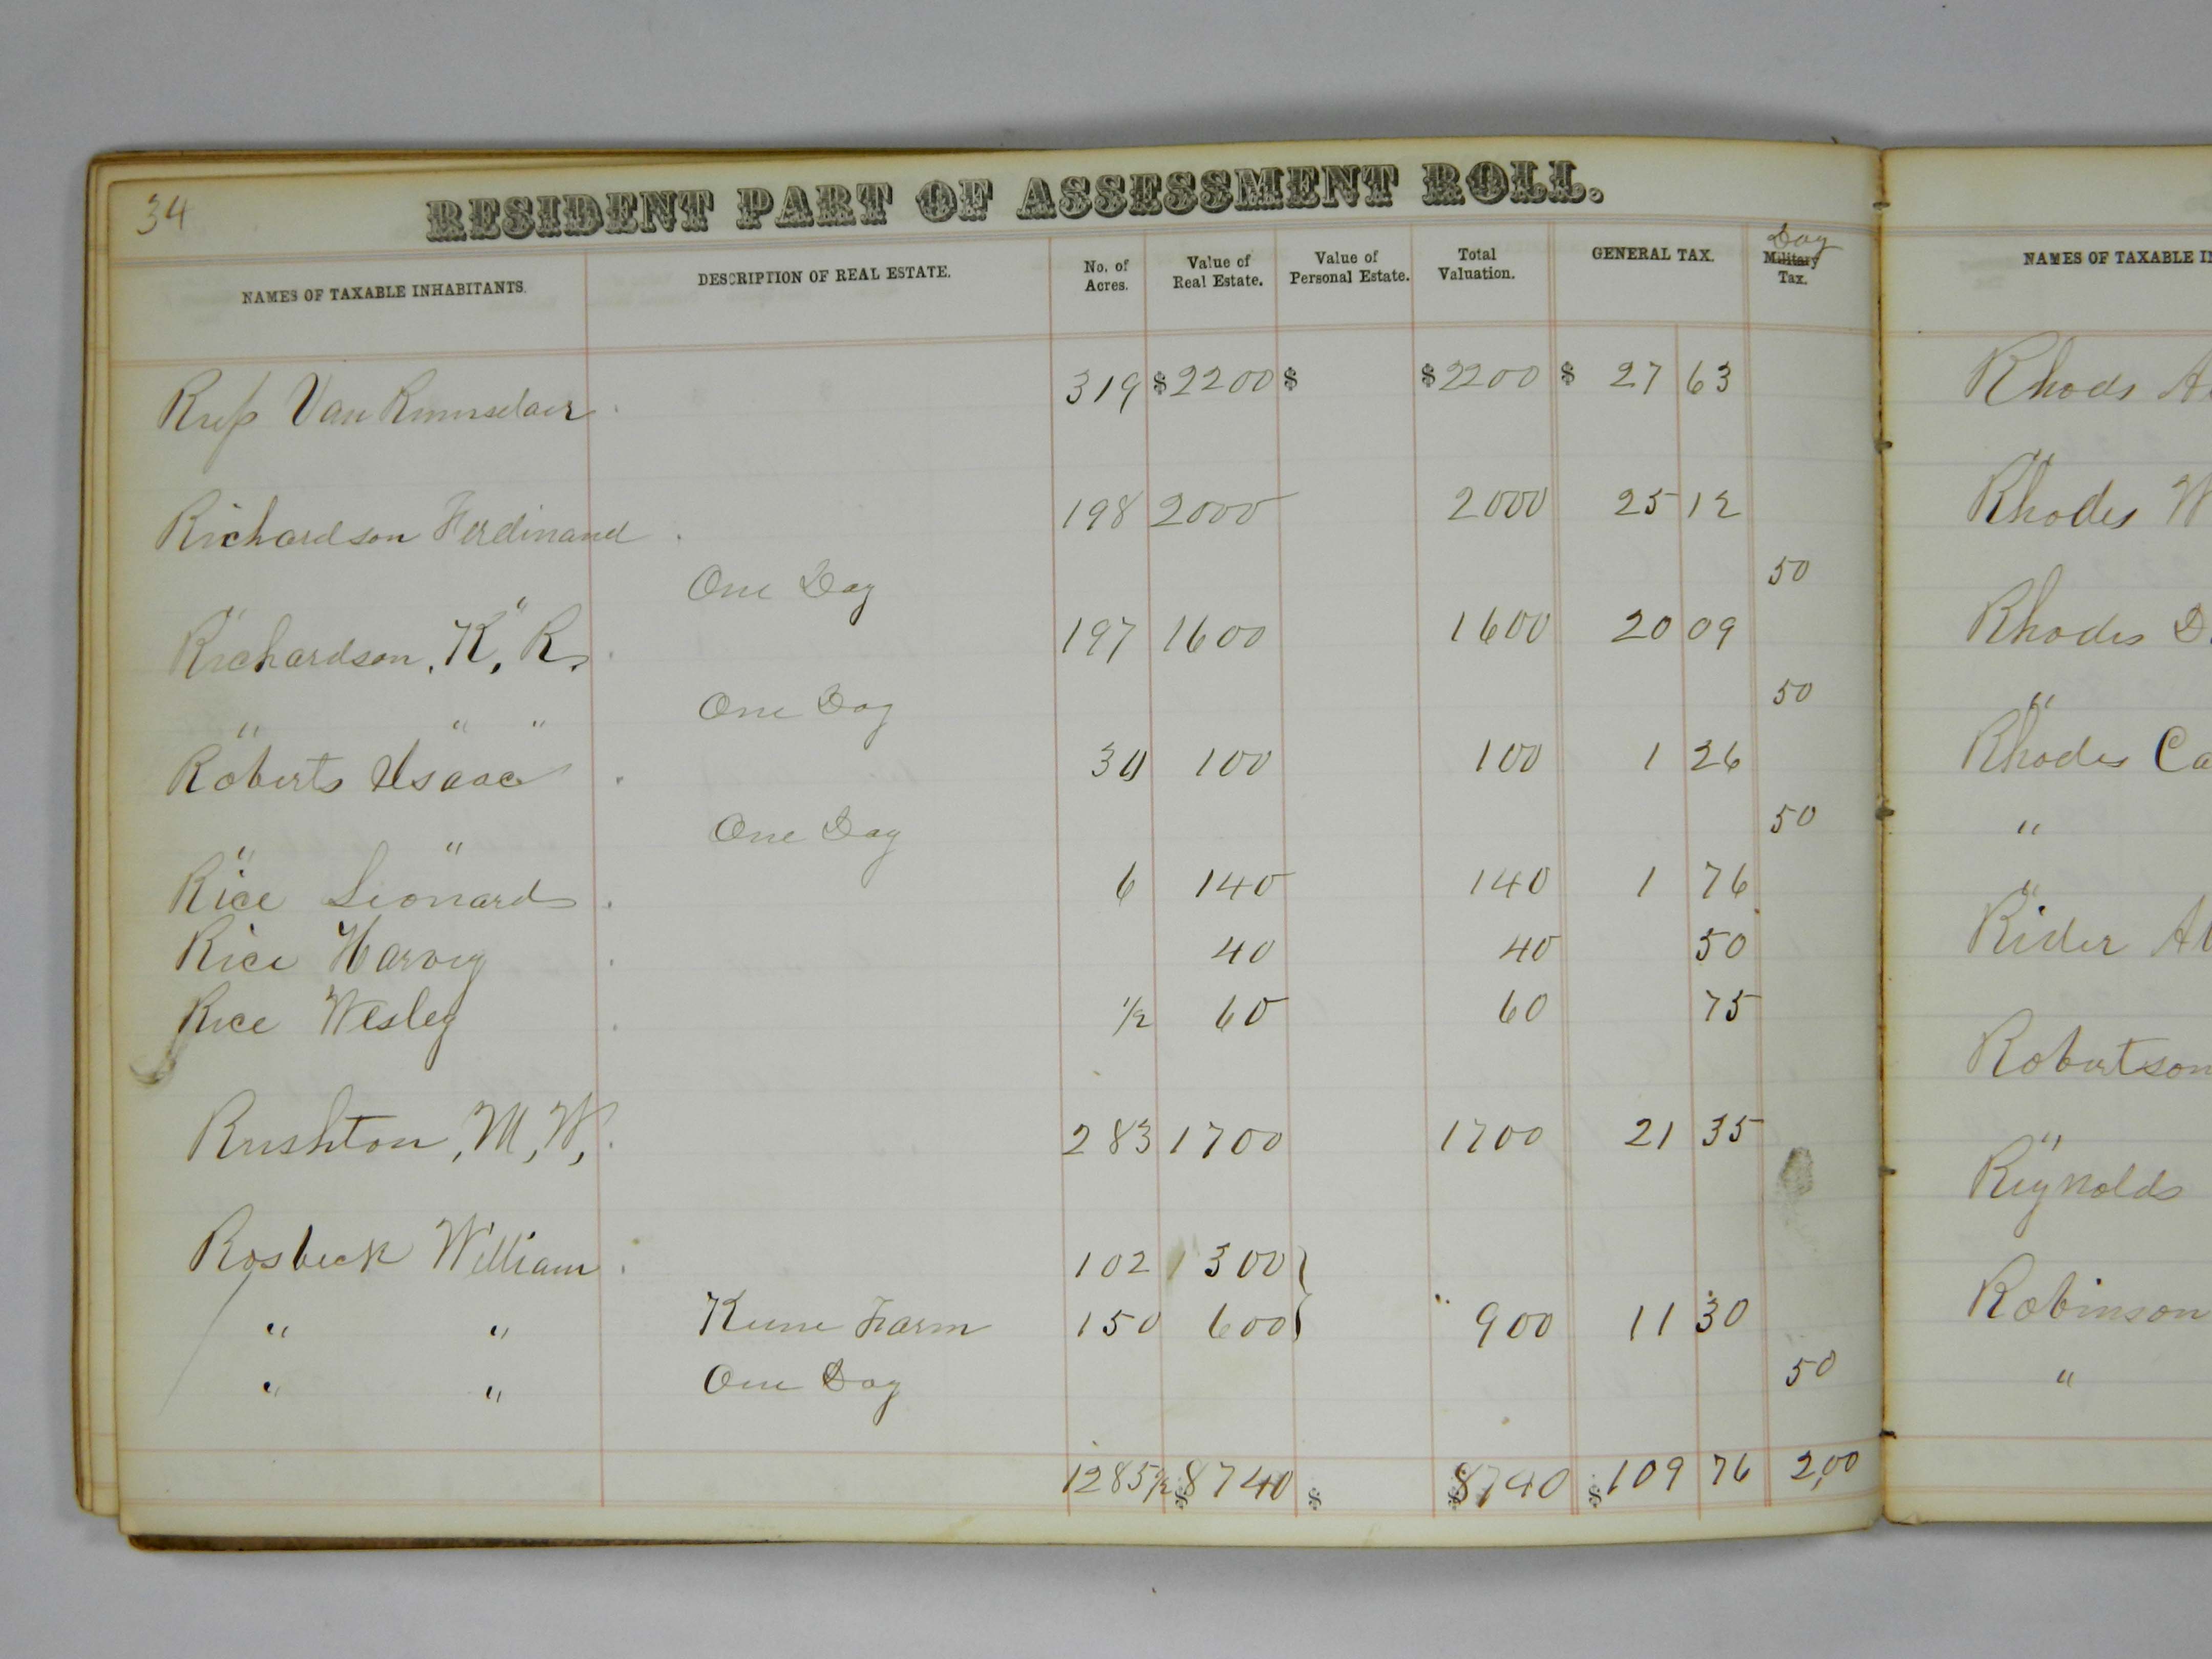 34
RESIDENT PART OF ASSESSMENT ROLL.
NAMES OF TAXABLE INHABITANTS. DESCRIPTION OF REAL ESTATE. No. of Acres. Value of Real Estate. Value of Personal Estate. Total Valuation. GENERAL TAX. Dog Military Tax.
Van 319 $2200 $ $2200 $ 27 63
Richardson Ferdinand 198 2000 2000 25 12
" " One Dog 50
Richardson, K, R. 197 1600 1600 20 09
" " " One Dog 50
Roberts Isaac 30 100 100 1 26
" " One Dog 50
Rice Leonard 6 140 140 1 76
Rice Harvey 40 40 50
Rice Wesley 1/2 60 60 75
Rushton, M, W, 283 1700 1700 21 35
Rosbeck William 102 300
" " Farm 150 600 900 11 30
" " One Dog 50
1285 1/2 $8740 $ $8740 $109 76 2,00
NAMES OF TAXABLE
Rhods
Rhodes
Rhodes
"
Rhodes
"
"
Rider
Robertson
"
Reynolds
Robinson
"